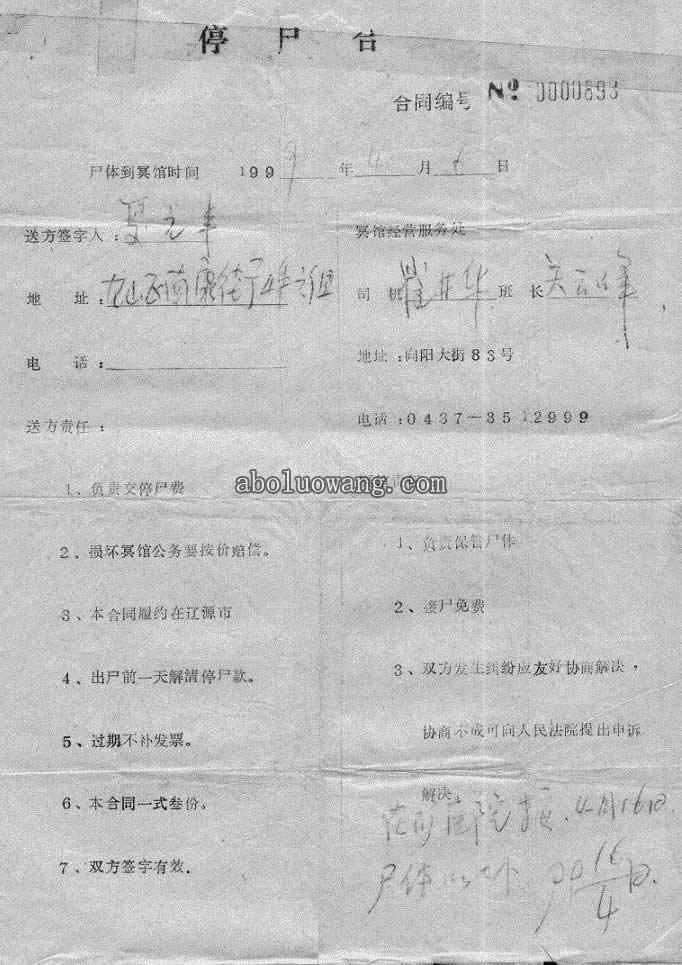 停尸合
合同编号 № 0000893
尸体到冥馆时间 1999年4月6日
送方签字人：
冥馆经营服务处
地 址：
司机 班长 关云峰
电 话：
地址：向阳大街83号
送方责任：
电话：0437—3512999
1、负责交停尸费
aboluowang.com
2、损坏冥馆公务要按价赔偿。
1、负责保管尸体
3、本合同履约在辽源市
2、接尸免费
4、出尸前一天解清停尸款。
3、双方发生纠纷应友好协商解决，
5、过期不补发票。
协商不成可向人民法院提出申诉
6、本合同一式叁份。
解决。
4月16日
7、双方签字有效．
尸体 16/4日